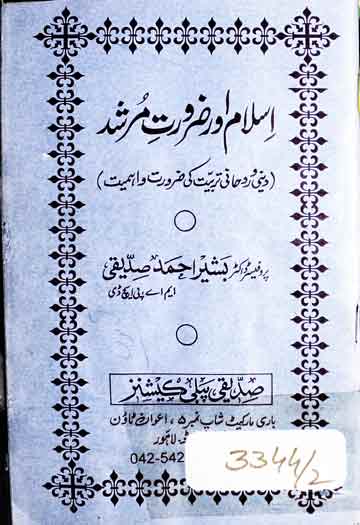 اسلام اور ضرورتِ مُرشد
(دینی و روحانی تربیّت کی ضرورت و اہمیت)
پروفیسر ڈاکٹر بشیر احمد صدیقی
ایم اے پی ایچ ڈی
صدیقی پبلی کیشنز
باری مارکیٹ شاپ نمبر ۵، اعوان ٹاؤن
لاہور
042-542
3344/2